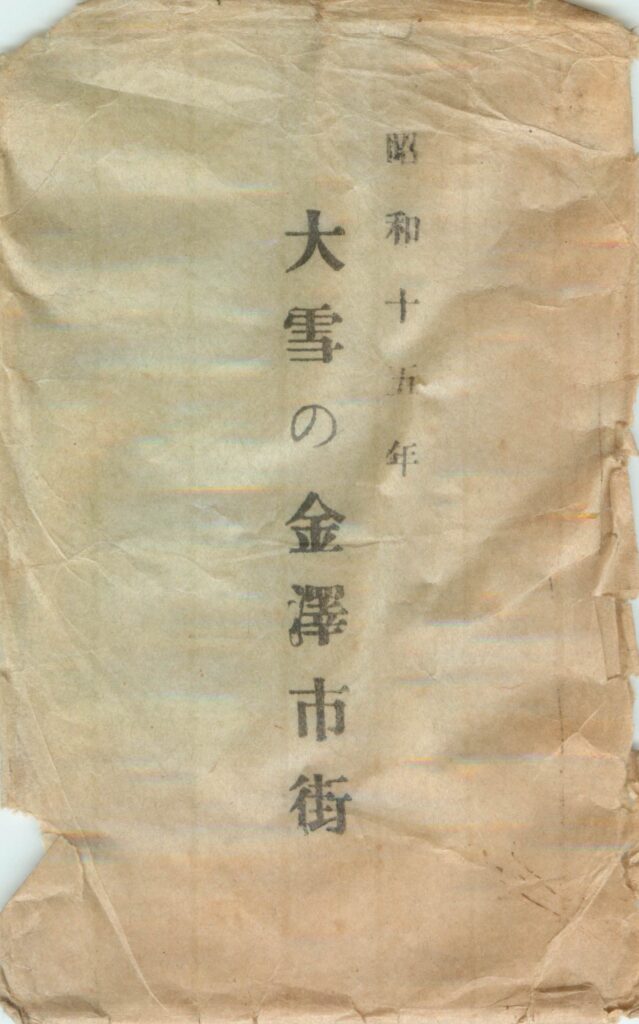 昭和十五年
大雪の金澤市街